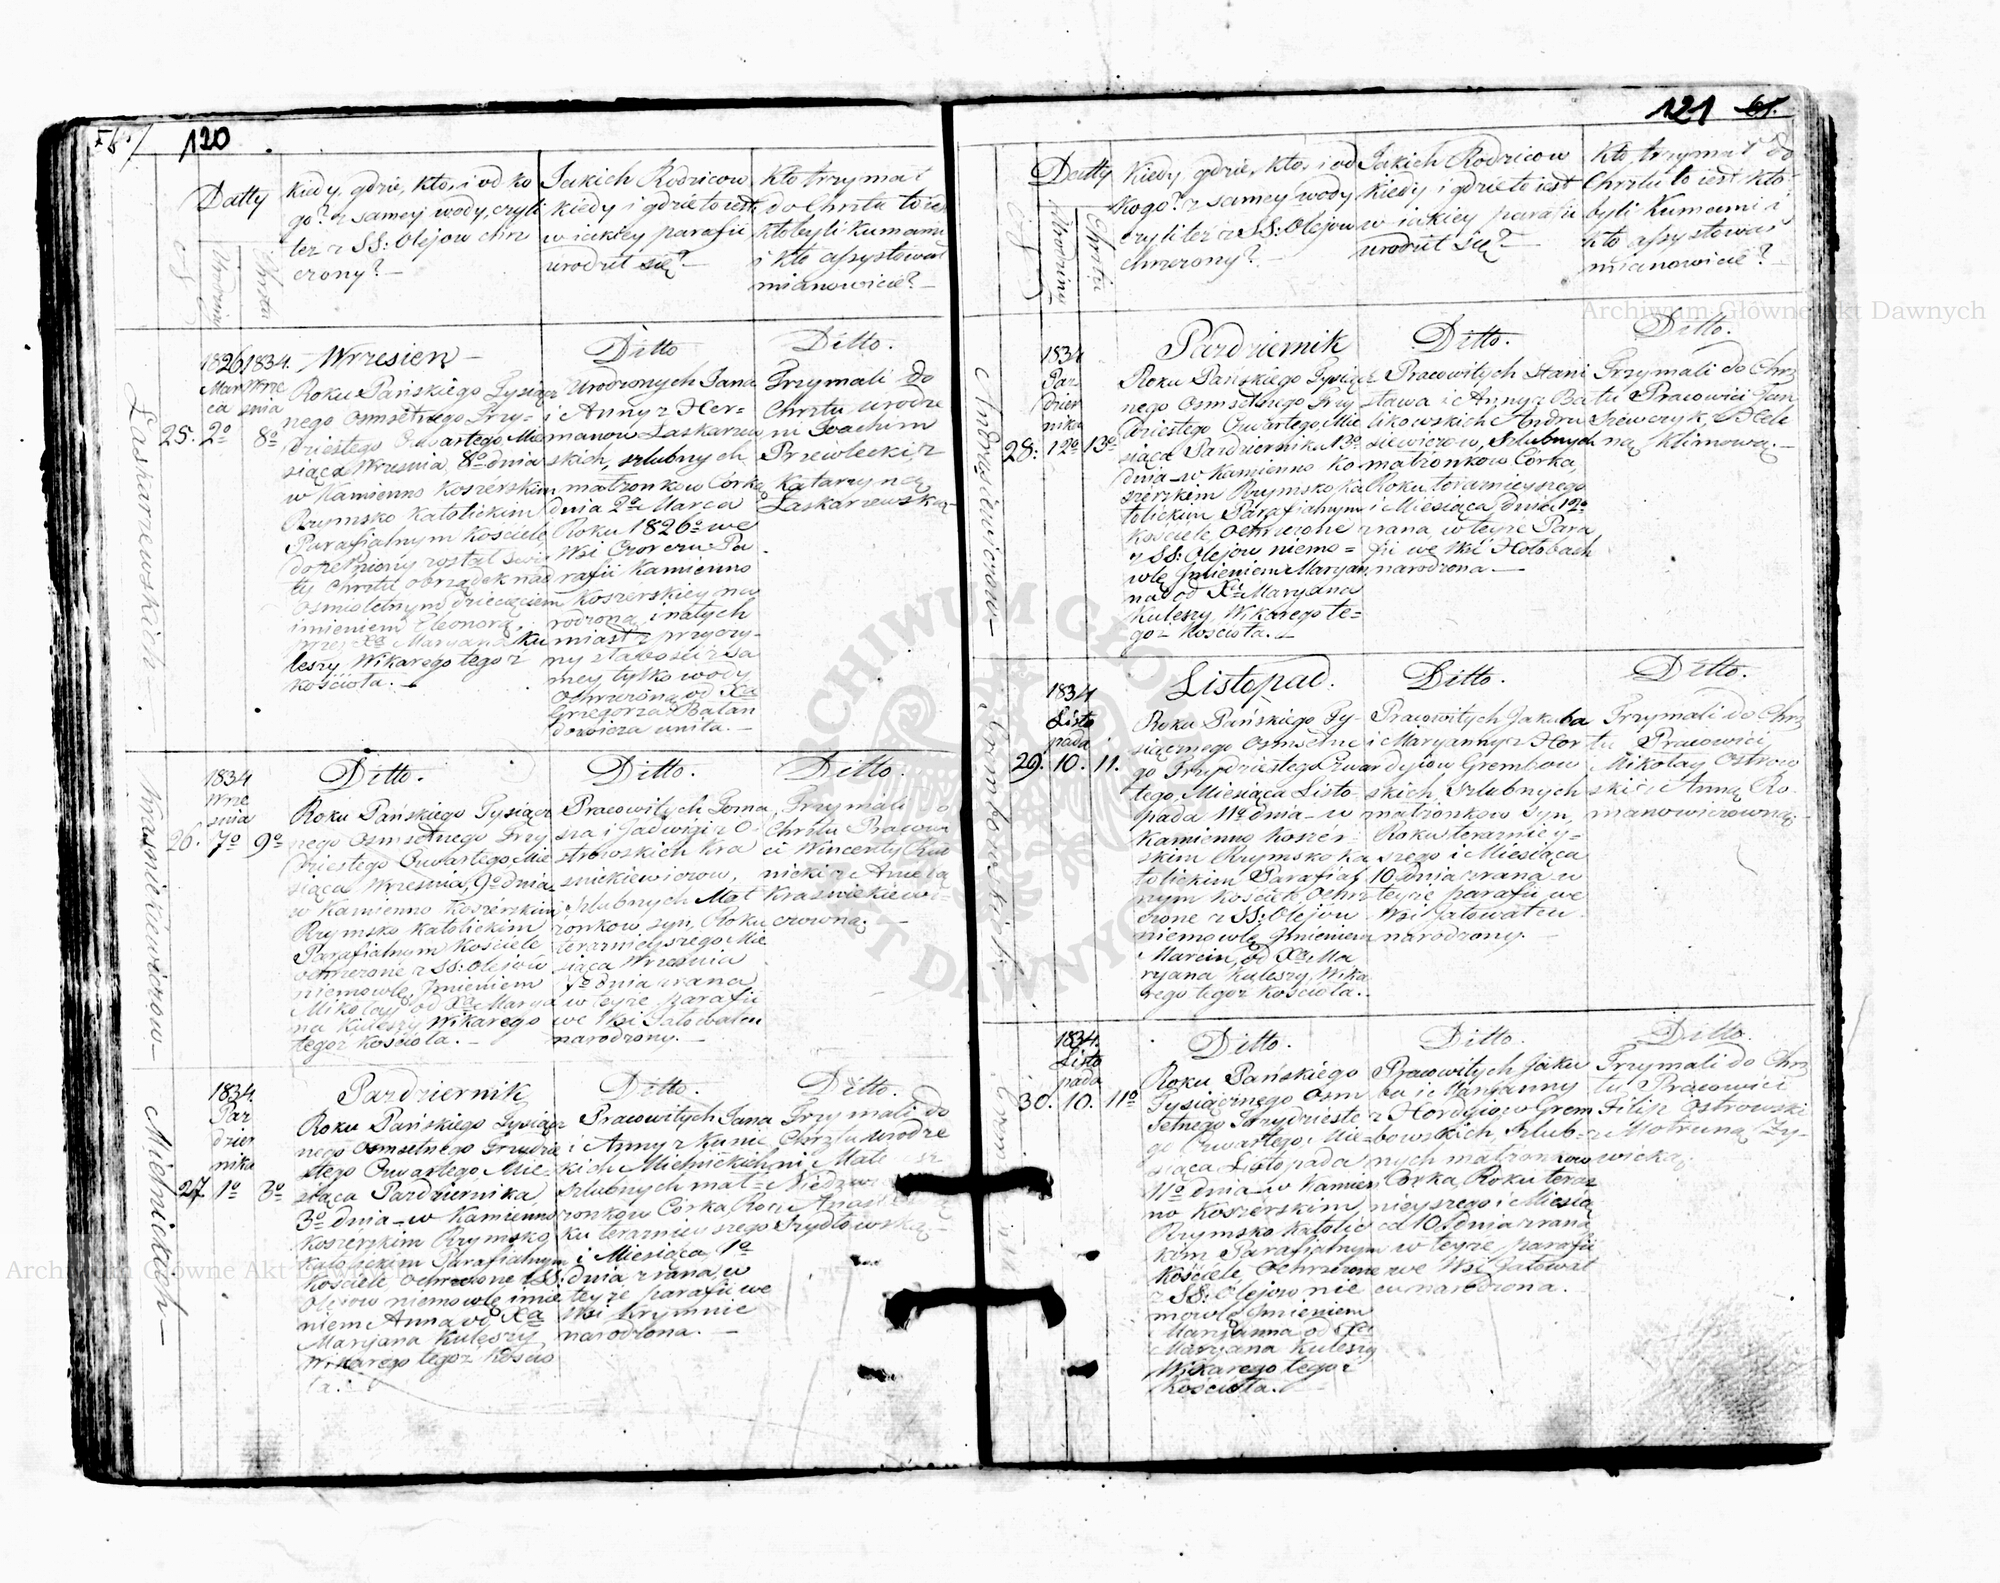 120
Datty
Kiedy, gdzie, kto, i od ko
go? z samey wody, czyli
też z SS: Olejow chrz
czony? —
Jakich Rodzicow
kiedy i gdzie to iest
w iakiey parafii
urodził się? —
Kto trzymał
do Chrztu to iest
kto byli Kumami
i kto assystował
mianowicie? —
Urodzenia
Chrztu
Łaskarzewskich —
25.
1826
Mar
ca
2º
1834.
Wrze
śnia
8º
Wrzesień —
Roku Pańskiego Tysiącz
nego Osmsetnego Trzy-
dziestego Czwartego Mie
siąca Wrzesnia, 8º dnia
w Kamienno Koszérskim
Rzymsko Katolickim
Parafialnym Kościele
dopełniony został świę
ty Chrztu obrządek nad
Osmioletnym dziecięciem
imieniem Eleonorą,
przez Xa Maryana Ku
leszy Wikarego tegoż
Kościoła. —
Ditto
Urodzonych Jana
i Anny z Her-
manow Łaskarzew
skich, szlubnych
małżonkow Córka
dnia 2º Marca
Roku 1826º we
Wsi Czerczu Pa
rafii Kamienno
Koszerskiey na
rodzona, i natych
miast z przyczy-
ny słabości z sa
mey tylko wody
Ochrzczona, od Xa
Grzegorza Bałan
dowicza unita. —
Ditto.
Trzymali do
Chrztu Urodze
ni Joachim
Przewłecki z
Katarzyną
Łaskarzewską —
Kraśnickiewiczow —
26.
1834
Wrze
śnia
7º
9º
Ditto.
Roku Pańskiego Tysiącz
nego Osmsetnego Trzy
dziestego Czwartego Mie
siąca Wrzesnia, 9º dnia
w Kamienno Koszérskim
Rzymsko Katolickim
Parafialnym Kościele
ochrzczone z SS: Olejów
niemowlę Jmieniem
Mikołay, od Xa Marya
na Kuleszy Wikarego
tegoż Kościoła. —
Ditto.
Pracowitych Toma
sza i Jadwigi z O
strowskich Kra
śnickiewiczow,
szlubnych Mał
żonkow, syn, Roku
teraznieyszego Mie
siąca Wrzesnia
7º dnia zrana
w teyże Parafii
we Wsi Jałowaten
narodzony. —
Ditto.
Trzymali do
Chrztu Pracowi
ci Wincenty
nicki z Anielą
Kraśnickiewi-
czowną; —
Mielnickich —
27.
1834.
Paź
dzier
nika
1º
3º
Pazdziernik
Roku Pańskiego Tysiącz
nego Osmsetnego Trzydzie
stego Czwartego, Mie-
siąca Pazdziernika
3º dnia — w Kamienno
Koszerskim Rzymsko
Katolickim Parafialnym
Kościele ochrzczone z SS:
Olejow niemowlę imie
niem Anna od Xa
Maryana Kuleszy
Wikarego tegoż Kościo
ła.
Ditto.
Pracowitych Jana
i Anny z Kunic
kich Mielnickich,
szlubnych mał-
żonkow Córka, Ro
ku teraznieyszego
i Miesiąca 1º
dnia zrana, w
teyże parafii we
Wsi Krymnie
narodzona. —
Ditto.
Trzymali do
Chrztu Urodze
ni
Szydłowską
121
61.
Datty
Kiedy, gdzie, kto, i od
kogo? z samey wody
czyli też z SS: Olejow
chrzczony? —
Jakich Rodzicow
kiedy i gdzie to iest
w iakiey parafii
urodził się? —
Kto trzymał do
Chrztu to iest kto
byli Kumami i
kto assystował
mianowicie? —
Urodzenia
Chrztu
Andrusiewiczow —
28.
1834
Paź
dzier
nika
12º
13º
Pazdziernik
Roku Pańskiego Tysiącz
nego Osmsetnego Trzy
dziestego Czwartego Mie
siąca Pazdziernika 13º
dnia — w Kamienno Ko
szerskim Rzymsko Ka
tolickim Parafialnym
Kościele, Ochrzczone
z SS: Olejow niemo=
wlę Jmieniem Maryan
na od Xa Maryana
Kuleszy Wikarego te=
goż Kościoła. —
Ditto.
Pracowitych Stani
sława i Anny z Ba
likowskich Andru
siewiczow, Szlubnych
małżonkow Córka,
Roku teraznieyszego
i Miesiąca dnia 12º
zrana, w teyże Para
fii we Wsi Hołobach
narodzona. —
Ditto.
Trzymali do Chrz
tu Pracowici Jan
Szewczyk, z Hele
ną Klimową. —
29.
1834
Listo
pada
10.
11.
Listopad.
Roku Pańskiego Ty-
siącznego Osmsetne
go Trzydziestego Czwar
tego, Miesiąca Listo-
pada 11º dnia — w
Kamienno Koszér-
skim Rzymsko Ka
tolickim Parafial
nym Kościele Ochrz
czone z SS: Olejów
niemowlę Jmieniem
Marcin, od Xa Ma
ryana Kuleszy, Wika
rego tegoż Kościoła.
Ditto.
Pracowitych Jakuba
i Maryanny z Hor
dyjow Grembow
skich, Szlubnych
małżonkow Syn,
Roku terazniey-
szego i Miesiąca
10. dnia zrana w
teyże parafii we
Wsi Jałowaten
narodzony. —
Ditto.
Trzymali do Chrz
tu Pracowici
Mikołay Ostrow
ski i Anną Ro-
manowiczowną; —
30.
1834.
Listo
pada
10.
11º
Ditto.
Roku Pańskiego
Tysiącznego Osm
setnego Trzydzieste
go Czwartego, Mie-
siąca Listopada
11º dnia — w Kamien
no Koszérskim,
Rzymsko Katolic
kim Parafialnym
Kościele, Ochrzczone
z SS: Olejow nie
mowlę Jmieniem
Maryanna od Xa
Maryana Kuleszy
Wikarego tegoż
Kościoła.
Ditto.
Pracowitych Jaku
ba i Maryanny
z Hordyjow Grem
bowskich, Szlub-
nych małżonkow
Córka, Roku teraz
nieyszego i Miesią
ca 10. dnia zrana
w teyże parafii
we Wsi Jałowat
cu narodzona.
Ditto.
Trzymali do Chrz
tu Pracowici
Filip Ostrowski
z Motruną Ży-
wicką;
Archiwum Główne Akt Dawnych
Archiwum Główne Akt Dawnych